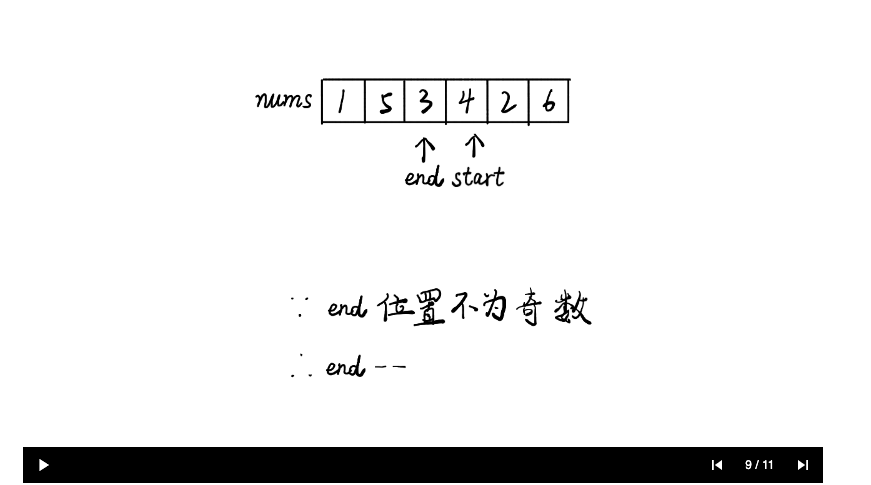 nums 1 5 3 4 2 6
↑ ↑
end start
∵ end 位置不为奇数
∴ end --
9 / 11